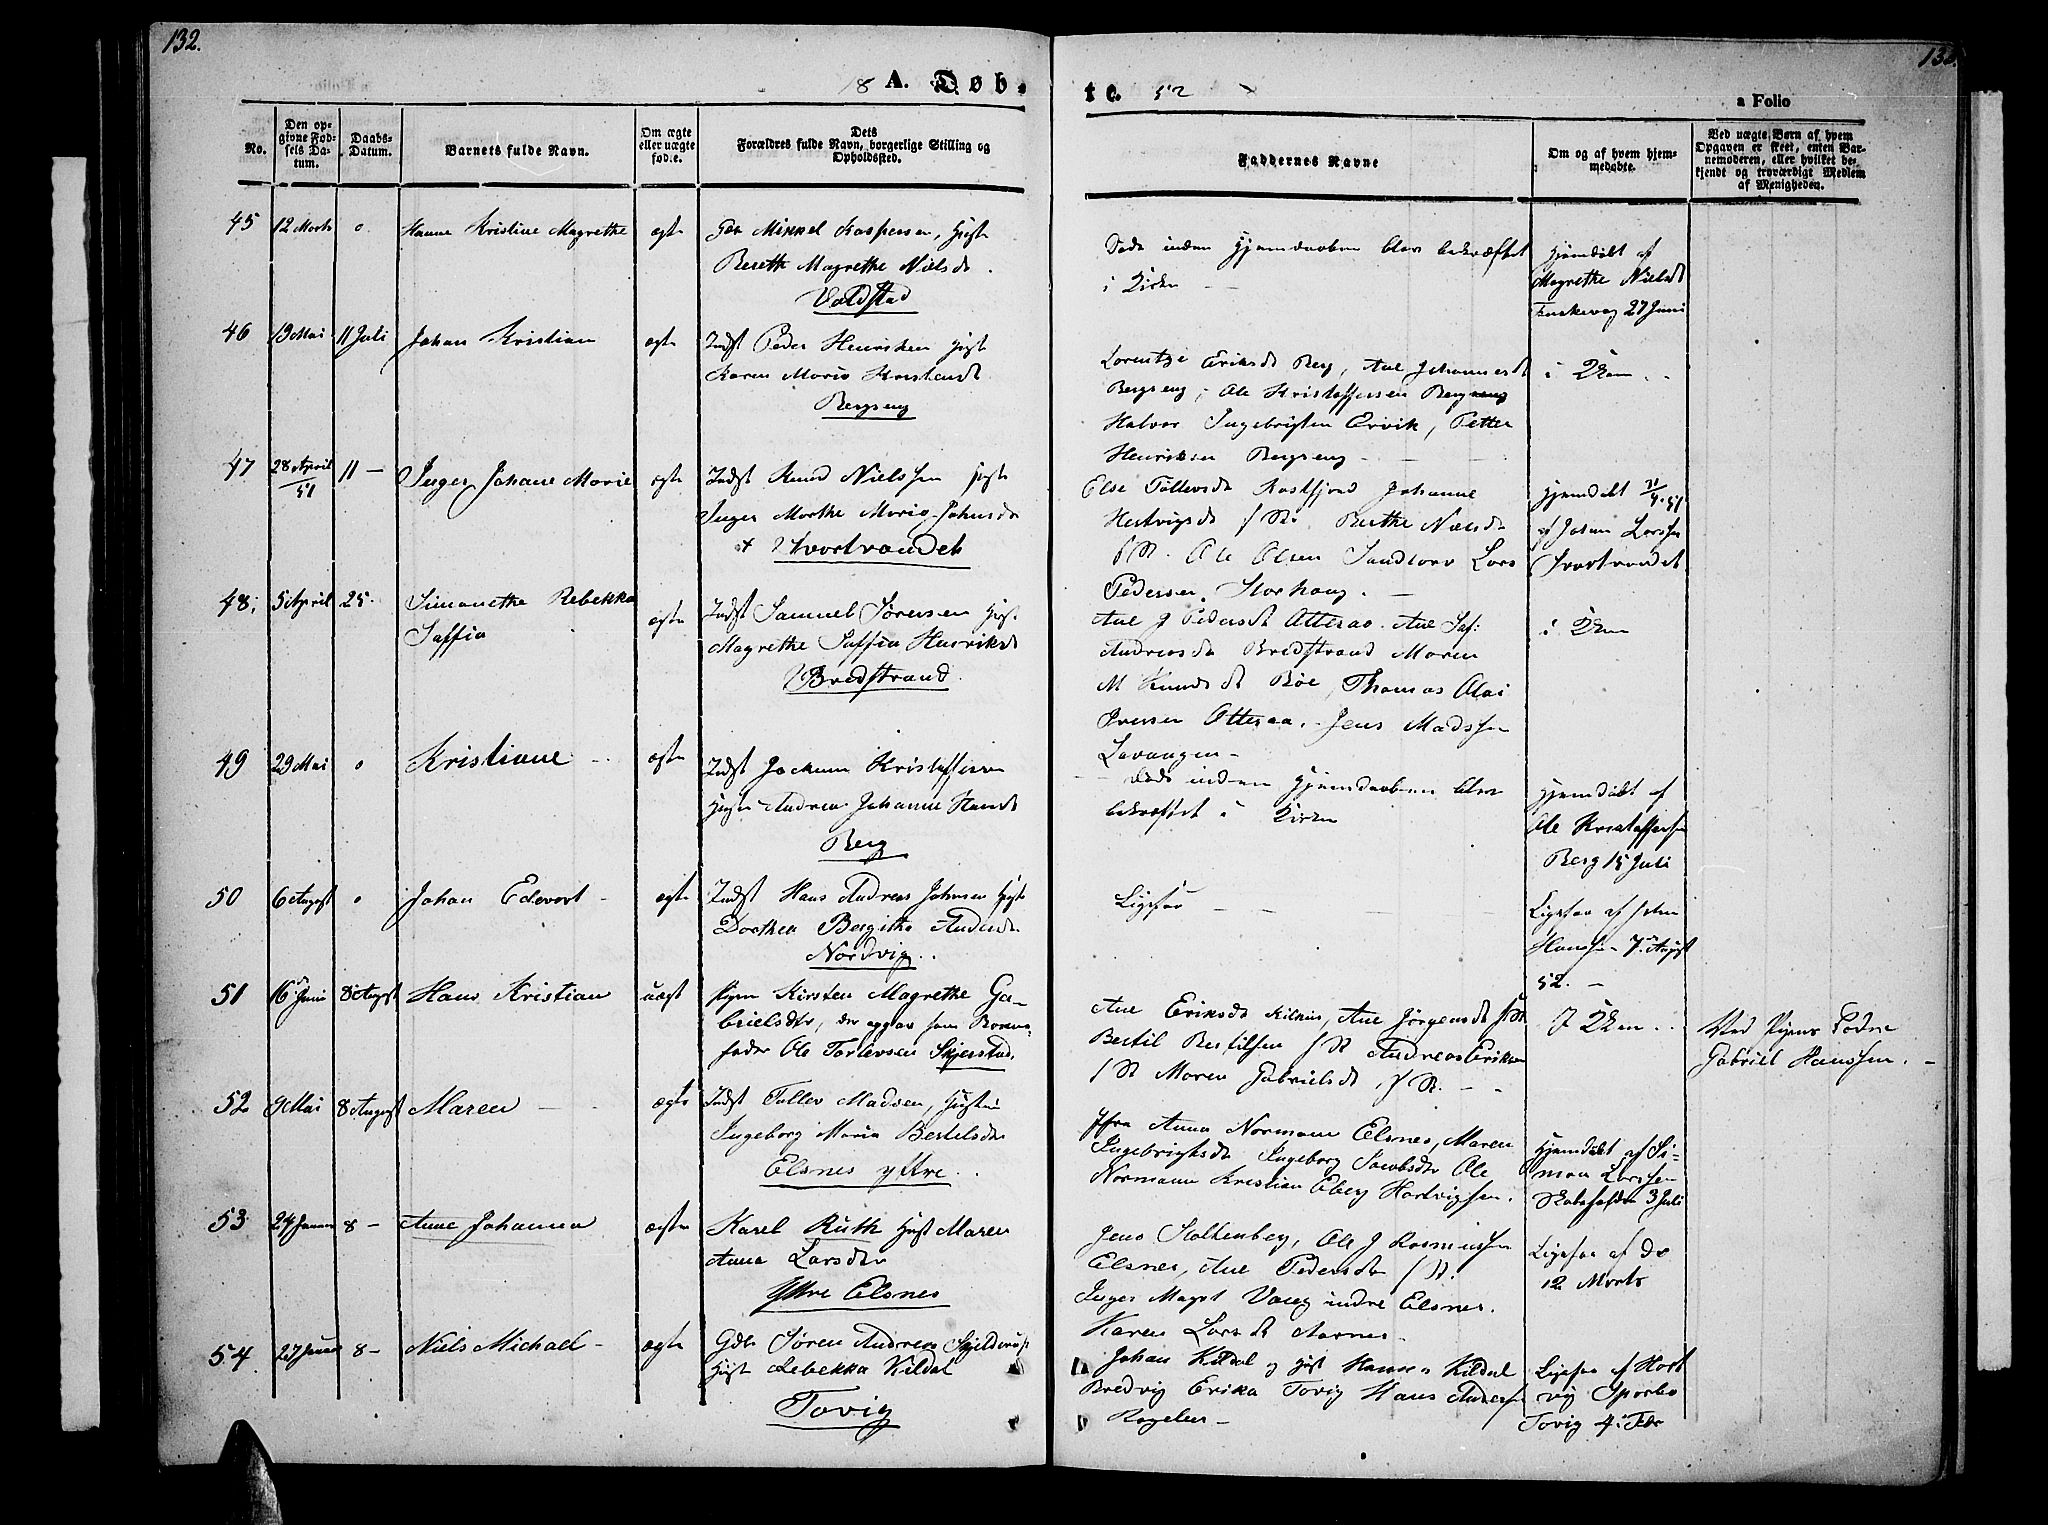 132.
18 A. Døb-
No.
Den op-
givne Fød-
sels Da-
tum.
Daabs-
Datum.
Barnets fulde Navn.
Om ægte
eller uægte
fød.e.
Dets
Forældres fulde Navn, borgerlige Stilling og
Opholdssted.
45 12 Marts 0 Hanne Kristine Magrethe ægte Gdr Mikkel Kaspersen, Hust
Berette Magrethe Nielsdt
Valdstad
46 19 Mai 11 Juli Johan Kristian ægte Indst Peder Henriksen Hust
Karen Maria Kristensdt
Bergseng
47 28 April
51 11 — Inger Johane Marie ægte Indst Knud Nielssen Hust
Inger Marthe Maria Johnsdt
Svartvandet
48. 5 April 25. Simonethe Rebekka
Saffia ægte Indst Samuel Sørensen Hust.
Magrethe Saffia Henriksdt
Bredstrand
49 29 Mai 0 Kristiane ægte Indst Jochum Kristoffersen
Hustr Andrea Johanne Hansdt
Berg
50 6 August 0 Johan Edevart ægte Indst Hans Andreas Johnsen Hust
Dorthea Bergithe Andersdt
Nordvig
51 16 Juni 8 August Hans Kristian uægt Pigen Kirsten Magrethe Ga-
brielsdtr, der opgav som Barne-
fader Ole Torlevsen Skjerstad.
52 9 Mai 8 August Maren ægte Indst Tollev Madsen, Hustru
Ingeborg Maria Bertelsdtr
Elsnes yttre
53 24 Januar 8 — Anne Johanna ægte Karel Ruth Hust Maren
Anna Larsdtr
Yttre Elsnes
54 27 Januar 8 — Niels Michael — ægte Gdbr Søren Andreas
Hust Rebekka Kildal
Tovig
te. 52
a Folio
Faddernes Navne
Om og af hvem hjem-
medøbte.
Ved uægte Børn af hvem
Opgaven er skeet, enten Bar-
nemoderen, eller hvilket be-
kjendt og troværdigt Medlem
af Menigheden.
Døde inden Hjemdaaben blev bekræftet
i Kirken
Hjemdøbt af
Magrethe Nielsdt
27 Juni
Lorentze Eriksdt Berg, Ane Johannesdt
Bergseng, Ole Kristoffersen Bergseng
Halvor Ingebrigtsen Ervik, Petter
Henriksen Bergseng
i Kken
Else Tollevsdt Rostfjord Johanne
Hertvigsdt f St. Berthe Nielsdt
f St. Ole Olsen Sandtorv Lars
Pedersen Storhaug.
Hjemdøbt
af Johan Larssen
Svartvandet
Ane J Pedersdt Otteraa. Ane Saf:
Andreasdt Bredstrand Maren
M Knudsdt Bøe, Thomas Olai
Iversen Otteraa. Jens Madssen
Lavangen
i Kken
Døde inden Hjemdaaben blev
bekræftet i Kirken
Hjemdøbt af
Ole Kristoffersen
Berg 15 Juli
Ligesaa
Ligesaa af John
Hanssen 7 August
52.
Ane Eriksdt Kilhus, Ane Jørgensdt f St
Bertil Bertilsen f St Andreas Eriksen
f St Maren Gabrielsdt f St.
I Kken
Ved Pigens Fader
Gabriel Hanssen.
Jfru Anna Normann Elsnes, Maren
Ingebrigtsdt Ingeborg Jacobsdtr Ole
Normann Kristian Eberg Hartvigsen.
Hjemdøbt af Si-
mon Larssen
3 Juli
Jens Holtenberg, Ole J Rasmussen
Elsnes, Ane Pedersdtr f St.
Inger Magrt Vaeg indre Elsnes.
Karen Larsdt Aarnes
Ligesaa af do
12 Marts
Johan Kildal og Hust Hanna Kildal
Bredvig Erika Tovig Hans Andersen
Ligesaa af Hart
vig Sparbo
Tovig 4. Febr